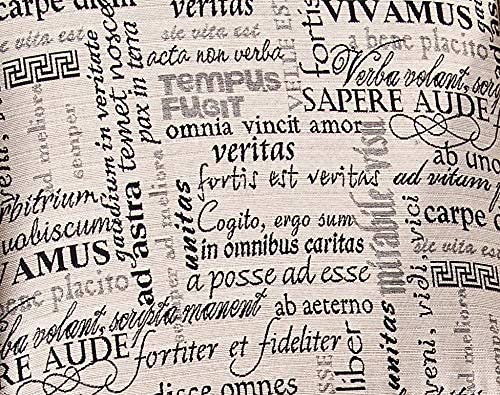 carpe diem
veritas
fortis
VIVAMUS
sie vita est
a beac placito
acta non verba
gaudium in veritate
temet nosce
pax in terra
ad meliora
semper
TEMPUS
FUGIT
Verba volant, scripta
SAPERE AUDE
omnia vincit amor
veritas
ab uno
fortis est veritas
ad vitam
arbitrium
vobiscum
unitas
Cogito, ergo sum
mirabile visu
carpe
sie vita est
VAMUS
in omnibus caritas
ad astra
semper ad meliora
beac placito
a posse ad esse
veni, vidi,
Verba volant, scripta manent
ab aeterno
RE AUDE
fortiter et fideliter
liber
unitas
disce omnes